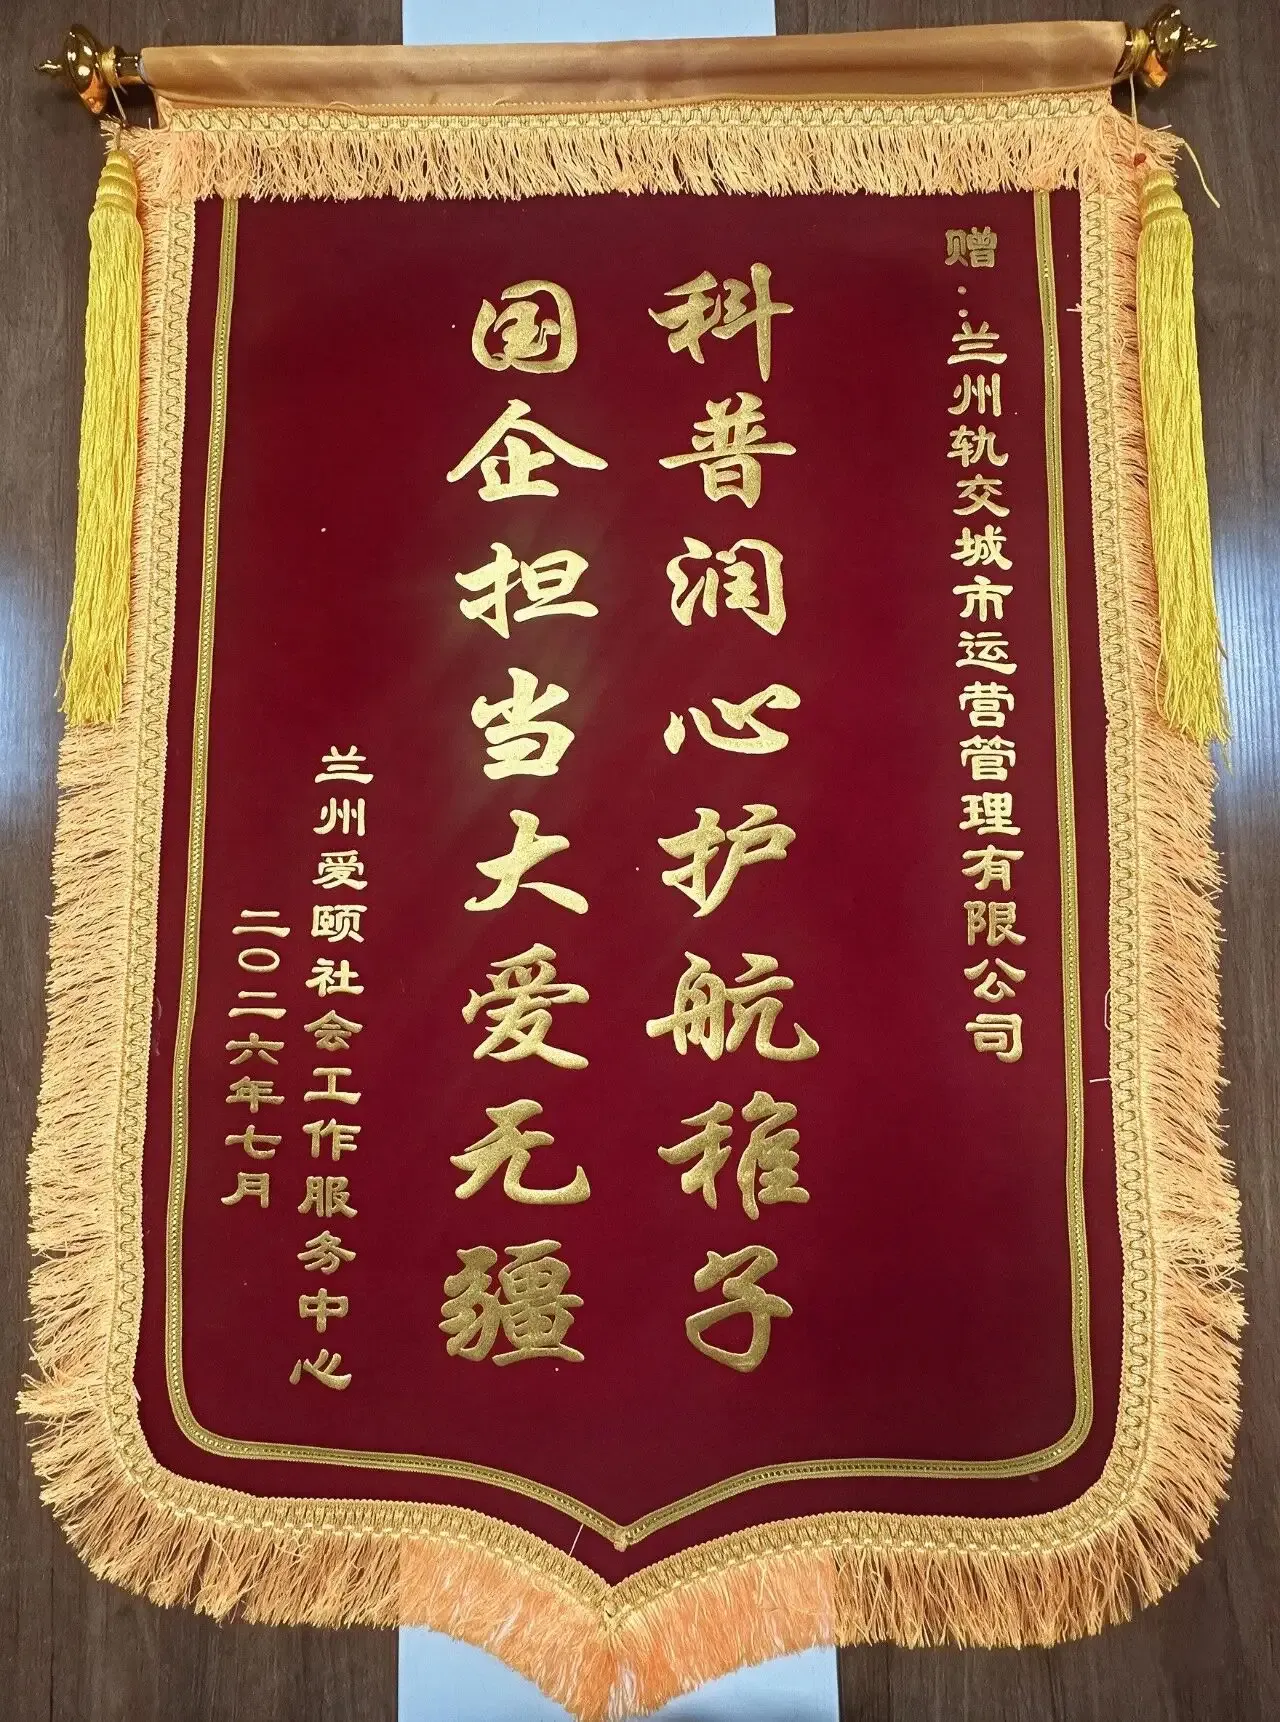 赠：兰州轨交城市运营管理有限公司
科普润心护航稚子
国企担当大爱无疆
兰州爱颐社会工作服务中心
二〇二六年七月